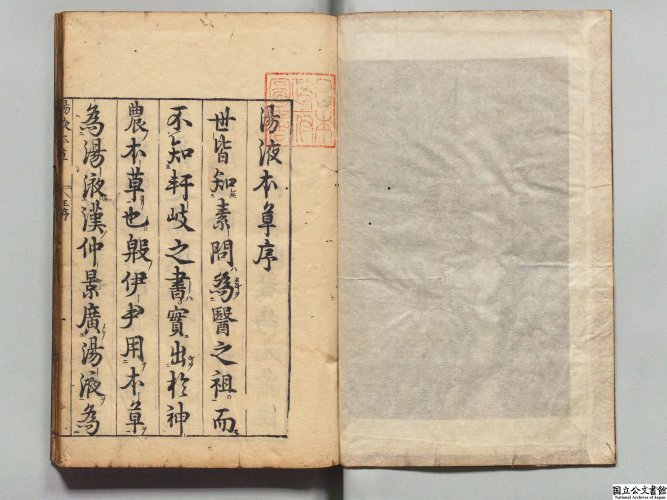 湯液本草序
世皆知素問為醫之祖而
不知軒岐之書實出於神
農本草也殷伊尹用本草
為湯液漢仲景廣湯液為
湯液本草
日本
政府
圖書
国立公文書館
National Archives of Japan